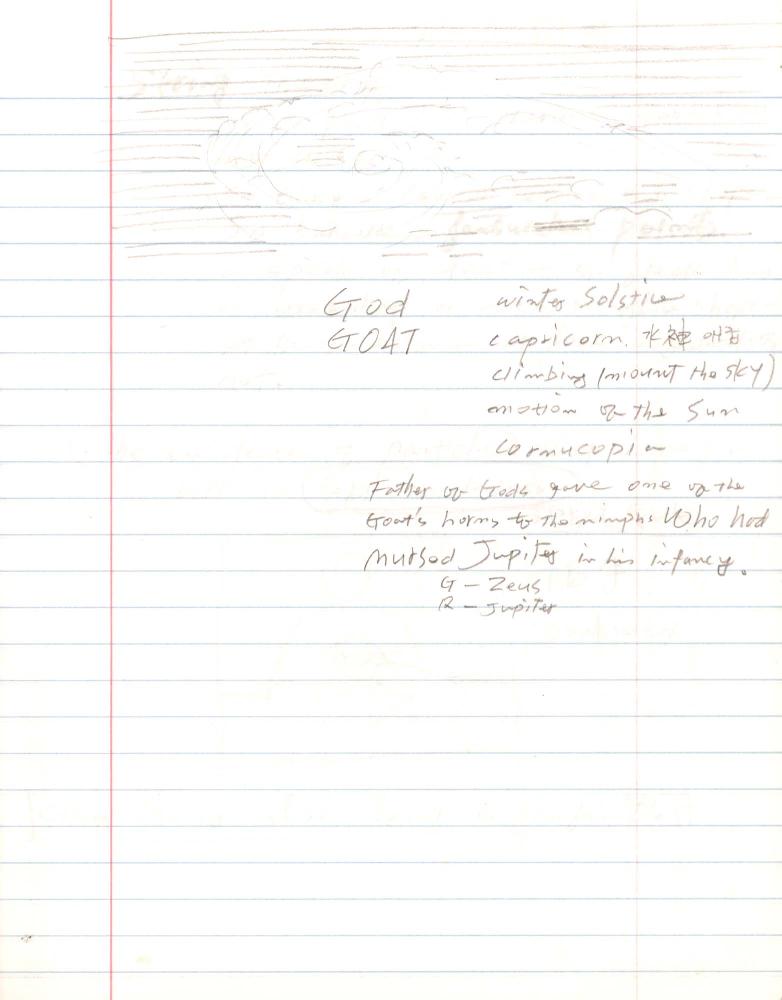 God winter Solstice
GOAT capricorn. 水神
climbing (mount the sky)
motion of the Sun
cornucopia
Father of Gods gave one of the
Goat's horns to the nimphs Who had
nursed Jupiter in his infancy.
G – Zeus
R – Jupiter